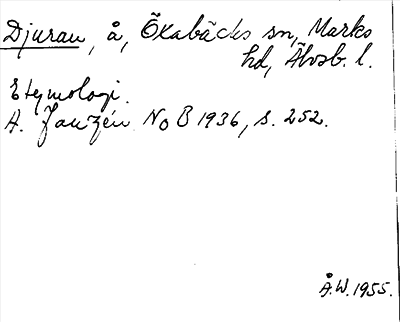 Djuran, å, Öxabäcks sn, Marks
hd, Älvsb. l.
Etymologi.
A. Janzén NoB 1936, s. 252.
Å.W. 1955.